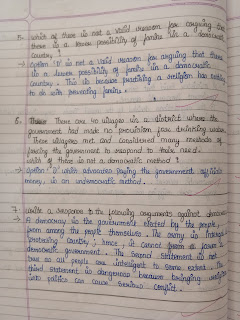 5. Which of these is not a valid reason for arguing that
there is a lesser possibility of famine in a democratic
country?
→ Option 'D' is not a valid reason for arguing that there
is a lesser possibility of famine in a democratic
country. This is because practising a religion has nothing
to do with preventing famine.
6. There are 40 villages in a district where the
government had made no provision for drinking water.
These villagers met and considered many methods of
forcing the government to respond to their need.
which of these is not a democratic method?
→ Option 'D' which advocates paying the government officials
money, is an undemocratic method.
7. Write a response to the following arguments against democracy
→ A democracy is the government elected by the people,
from among the people themselves. The army is
protecting country; hence, it cannot form a
democratic government. The second statement is not
true as all people are intelligent to some extent. The
third statement is dangerous because bringing
into politics can cause serious conflict.